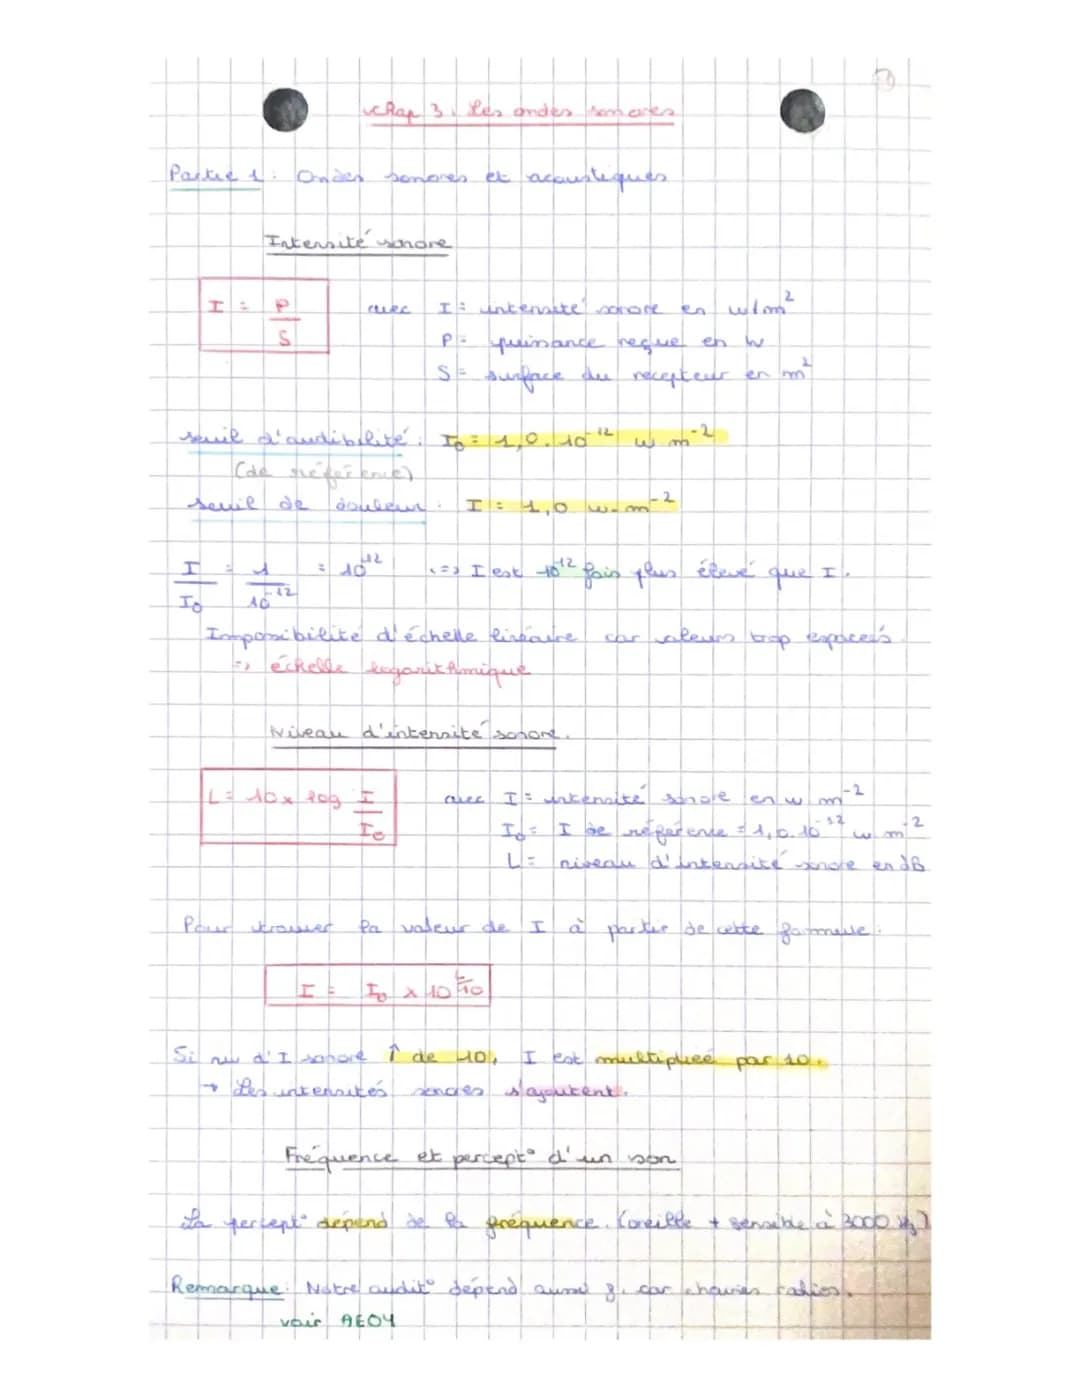 Chap 3. Les ondes sonores
Partie 1 : Ondes sonores et acoustiques
Intensité sonore
I = P/S avec I = intensité sonore en w/m²
P = puissance reçue en w
S = surface du récepteur en m²
seuil d'audibilité : I₀ = 1,0.10⁻¹² w m⁻²
(de référence)
seuil de douleur : I = 1,0 w.m⁻²
I/I₀ = 1/10⁻¹² = 10¹² <=> I est 10¹² fois plus élevé que I.
Impossibilité d'échelle linéaire car valeurs trop espacées.
=> échelle logarithmique
Niveau d'intensité sonore.
L = 10x log I/I₀ avec I = intensité sonore en w m⁻²
I₀ = I de référence = 1,0.10⁻¹² w m⁻²
L = niveau d'intensité sonore en dB
Pour trouver la valeur de I à partir de cette formule :
I = I₀ x 10^L/10
Si niv d'I sonore ↑ de 10, I est multipliée par 10.
→ Les intensités sonores s'ajoutent.
Fréquence et percept° d'un son
La percept° dépend de la fréquence. (oreille + sensible à 3000 Hz)
Remarque : Notre audit° dépend aussi car
voir AE04